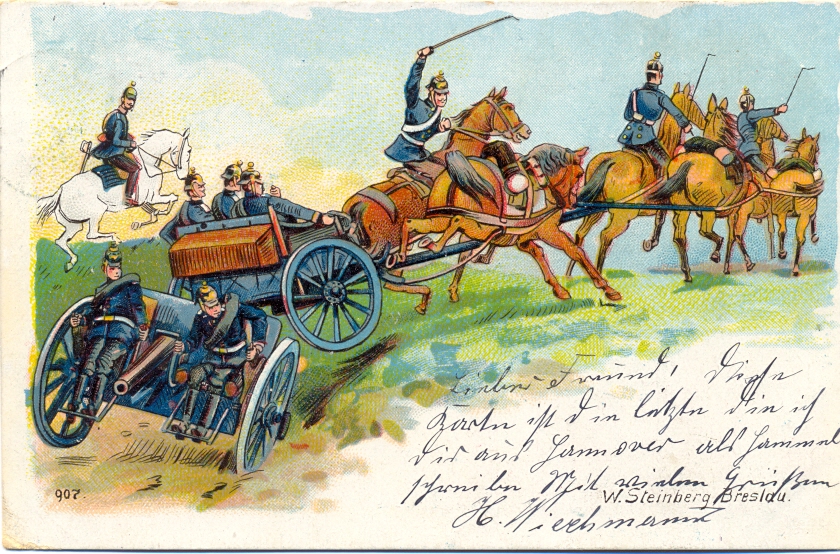 Lieber Freund, Diese
Karte ist die letzte die ich
Dir aus Hannover als Hammel
schreibe Mit vielen Grüßen
H. Wiechmann
907.
W. Steinberg, Breslau.